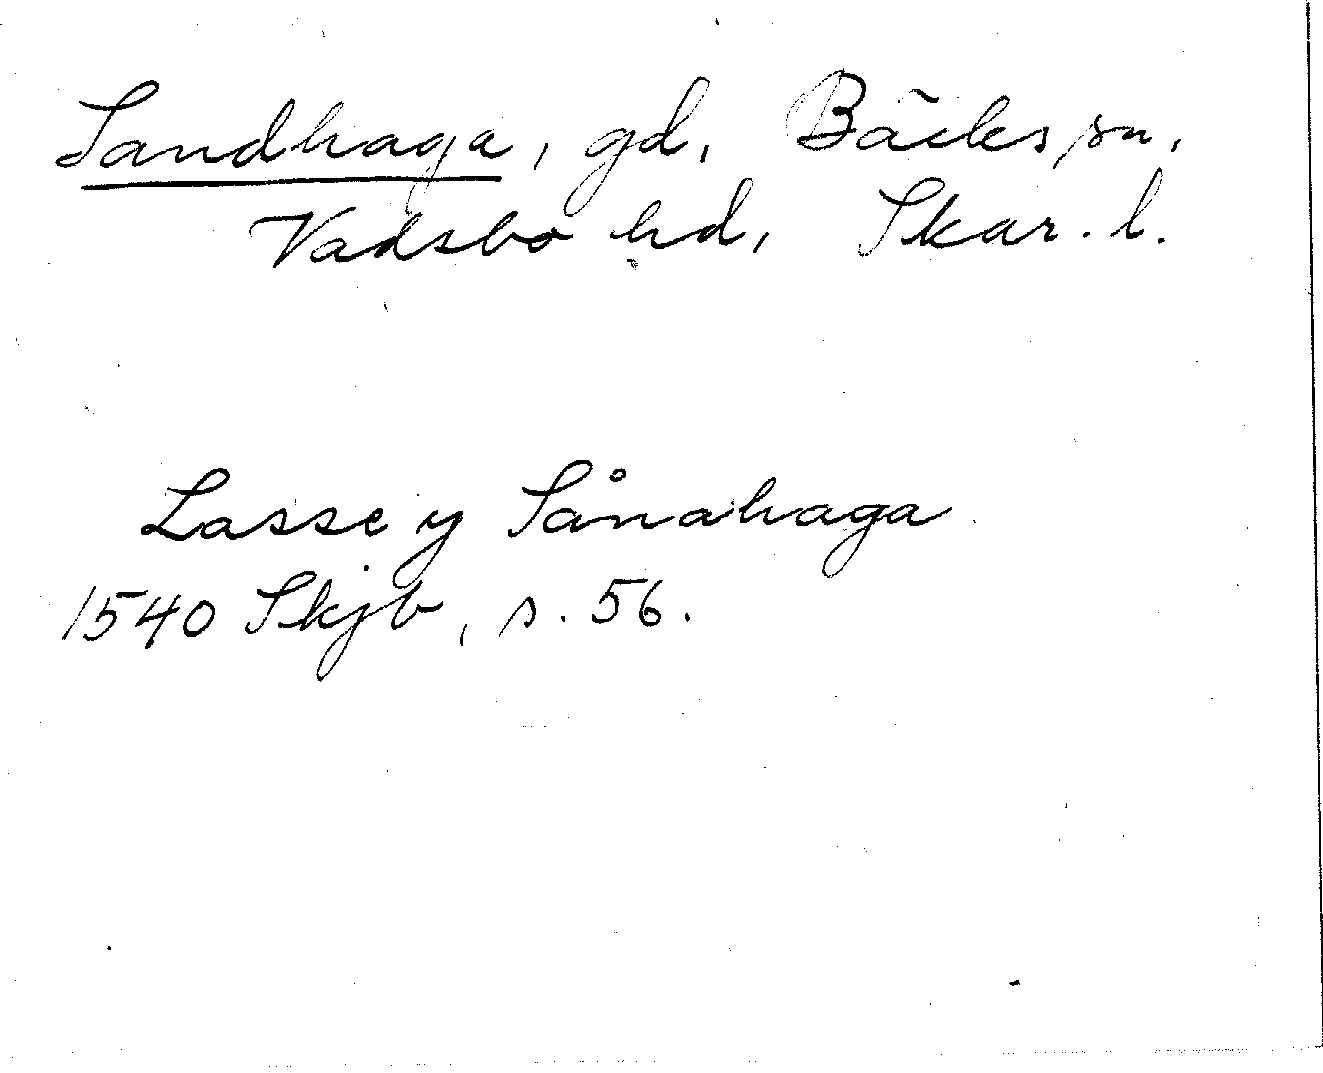 Sandhaga, gd, Bäcks sn,
Vadsbo hd, Skar. l.
Lasse y Sånahaga
1540 Skjb, s. 56.